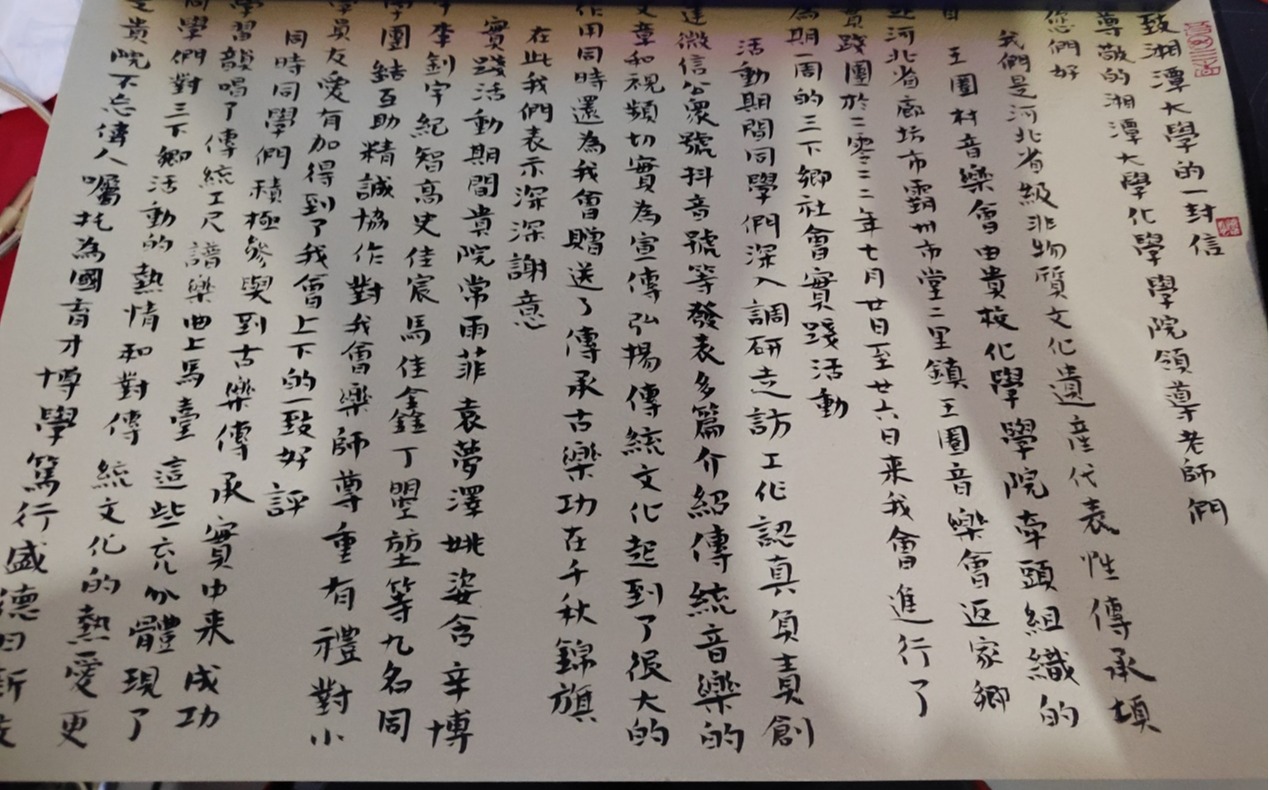 致湘潭大學的一封信
尊敬的湘潭大學化學學院領導老師們
您們好
我們是河北省級非物質文化遺産代表性傳承項
目
王圈村音樂會由貴校化學學院牽頭組織的
河北省廊坊市霸州市堂二里鎮王圈音樂會返家鄉
實踐團於二零二二年七月廿日至廿六日來我會進行了
為期一周的三下鄉社會實踐活動
活動期間同學們深入調研走訪工化認真負責創
建微信公衆號抖音號等發表多篇介紹傳統音樂的
文章和視頻切實為宣傳弘揚傳統文化起到了很大的
作用同時還為我會贈送了傳承古樂功在千秋錦旗
在此我們表示深深謝意
實踐活動期間貴院常雨菲袁夢澤姚姿含辛博
李釗宇紀智高史佳宸馬佳鑫丁曌堃等九名同
學團結互助精誠協作對我會樂師尊重有禮對小
學員友愛有加得到了我會上下的一致好評
同時同學們積極參與到古樂傳承實由來成功
學習韻唱了傳統工尺譜樂曲上馬臺這些充分體現了
同學們對三下鄉活動的熱情和對傳統文化的熱愛更
是貴院不忘偉人囑托為國育才博學篤行盛德日新